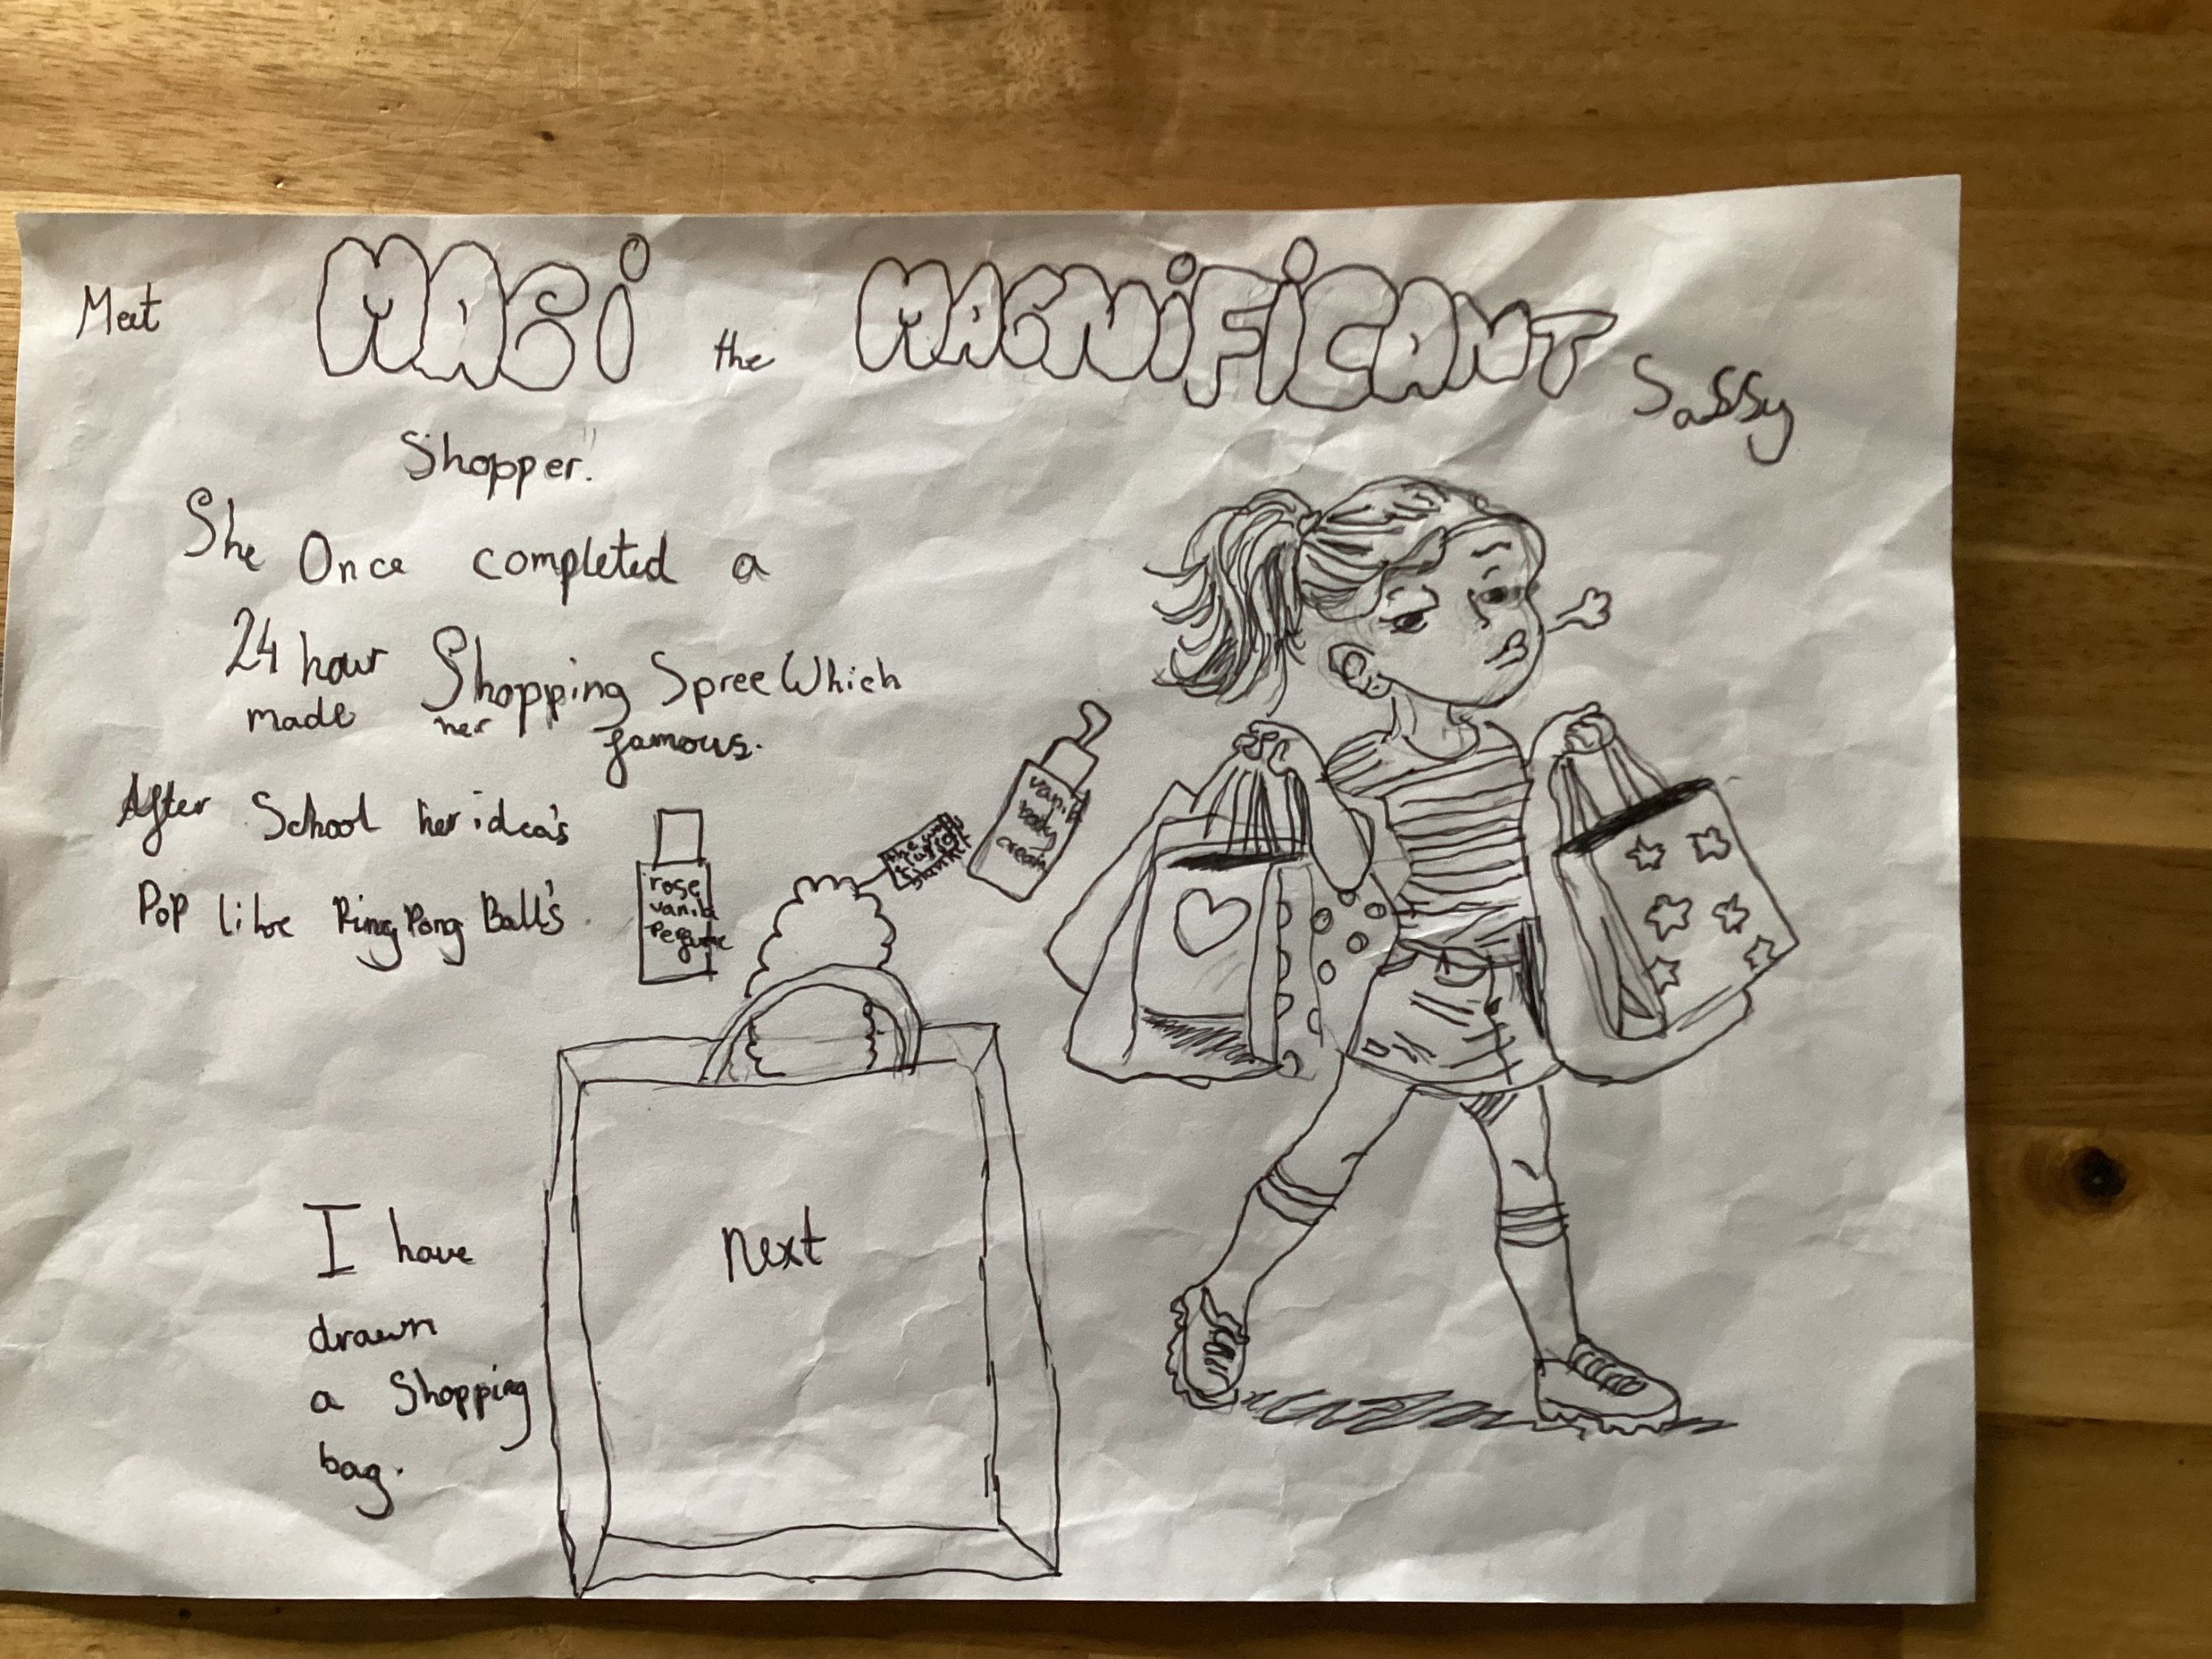 Meet MAGi the MAGNiFiCANT Sassy
Shopper!!
She Once completed a
24 hour Shopping Spree Which
made her famous.
After School her idea's
Pop like Ping Pong Ball's.
rose
vanila
Perfume
the
blanket
vanila
body
cream
I have
drawn
a Shopping
bag.
next